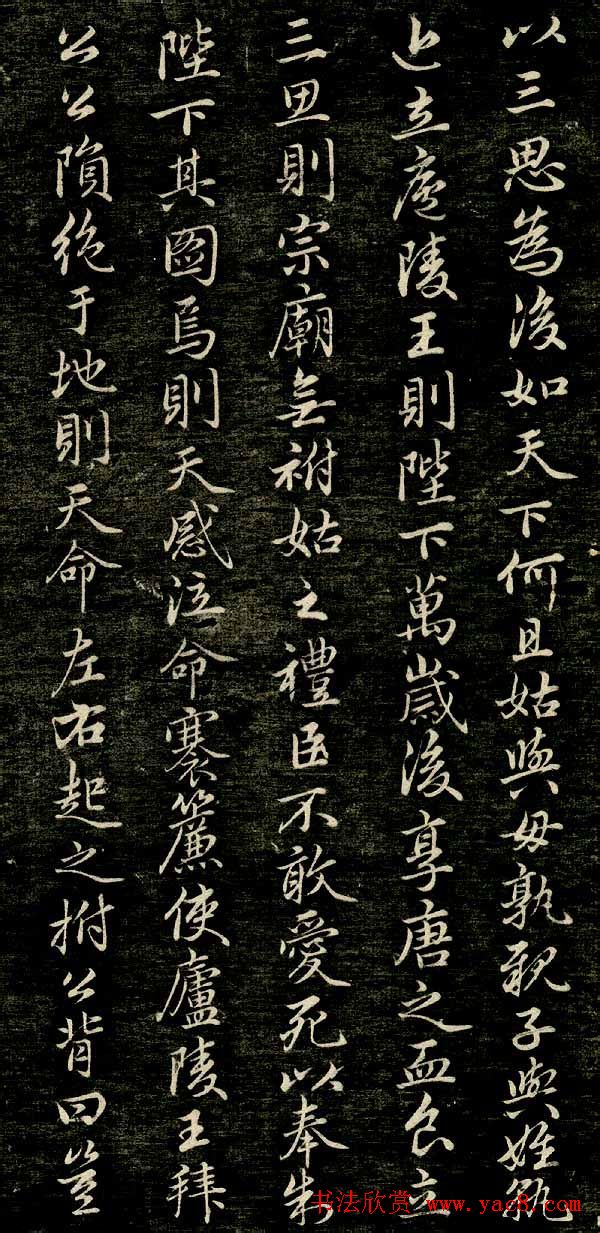 以三思為後如天下何且姑與母孰親子與姪孰
近立廬陵王則陛下萬歲後享唐之血食立
三思則宗廟無祔姑之禮臣不敢愛死以奉制
陛下其圖焉則天感泣命褰簾使廬陵王拜
公公隕絶于地則天命左右起之拊公背曰豈
书法欣赏 www.yac8.com